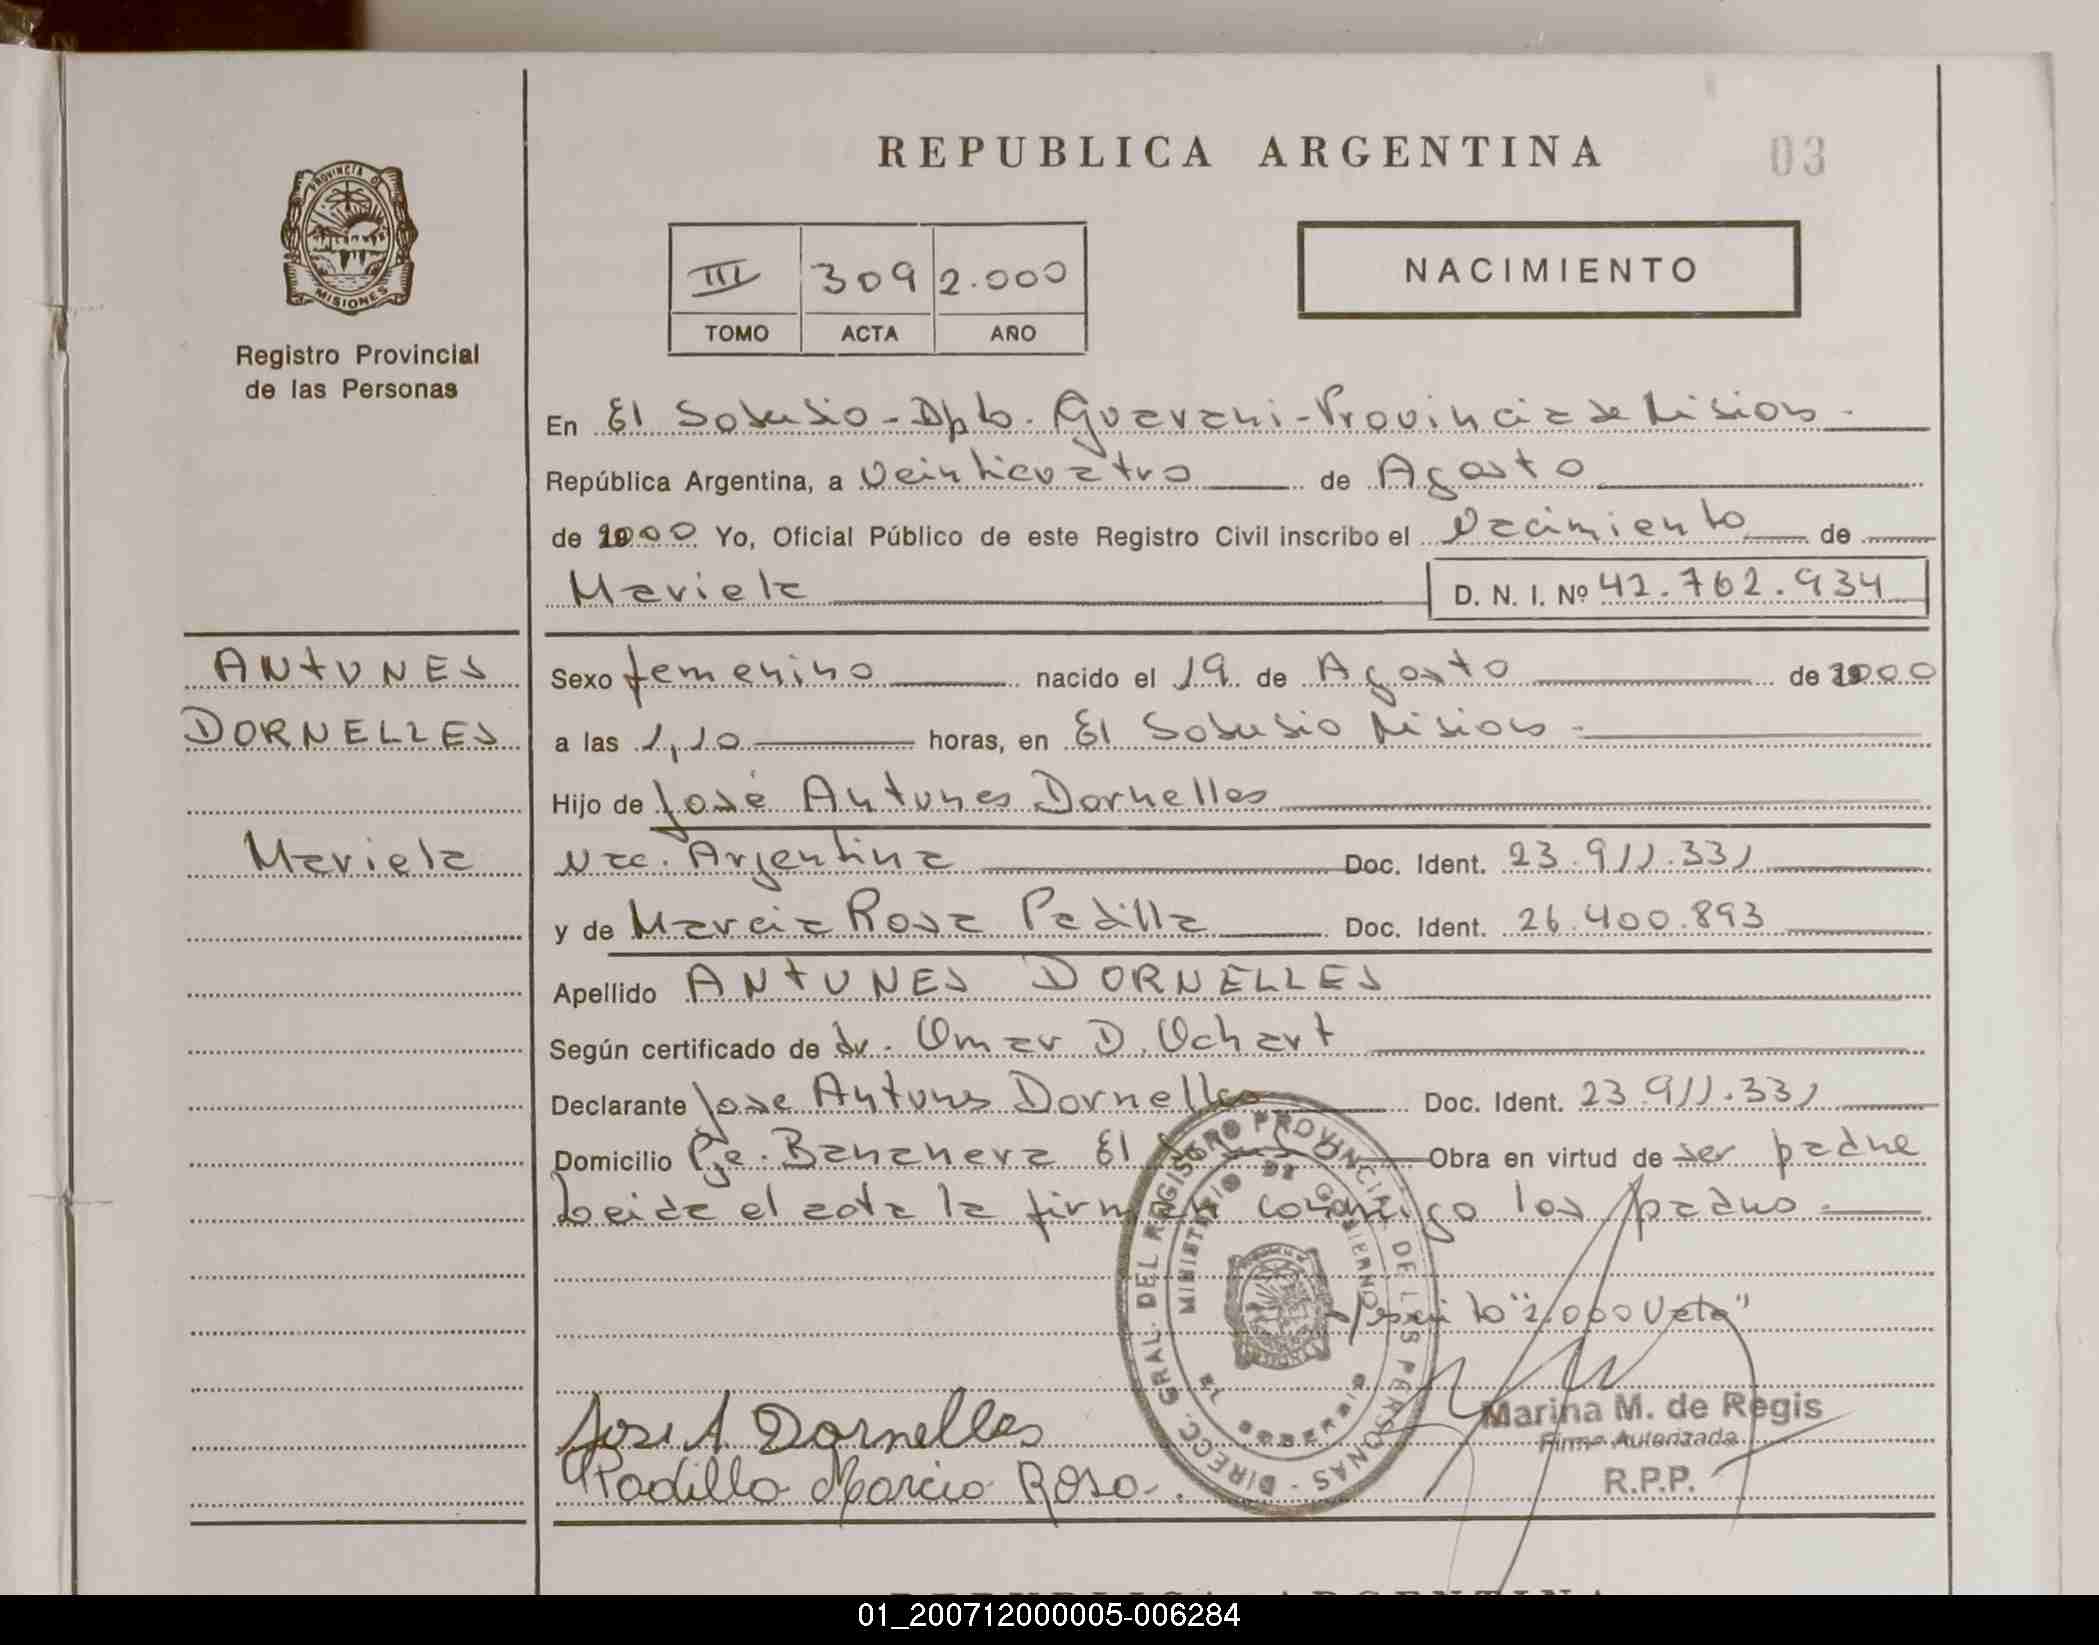 REPUBLICA ARGENTINA
03
PROVINCIA DE
MISIONES
Registro Provincial
de las Personas
III 309 2.000
TOMO ACTA AÑO
NACIMIENTO
En El Soberbio - Dpto. Guarani - Provincia de Misiones -
República Argentina, a Veinticuatro de Agosto
de 2000 Yo, Oficial Público de este Registro Civil inscribo el Nacimiento de
Mariela D. N. I. Nº 42.762.934
ANTUNES
DORNELLES
Mariela
Sexo femenino nacido el 19 de Agosto de 2000
a las 1,10 horas, en El Soberbio Misiones -
Hijo de José Antunes Dornelles
Nac. Argentina Doc. Ident. 23.911.331
y de Marcia Rosa Padilla Doc. Ident. 26.400.893
Apellido ANTUNES DORNELLES
Según certificado de dr. Omar D. Ochart
Declarante Jose Antunes Dornelles Doc. Ident. 23.911.331
Domicilio Pje. Bananera El Obra en virtud de ser padre
Leida el acta la firman conmigo los padres -
"2.000 Vale"
DIRECC. GRAL. DEL REGISTRO PROVINCIAL DE LAS PERSONAS -
MINISTERIO DE GOBIERNO
EL SOBERBIO
Jose A Dornelles
Padilla Marcia Rosa.
Marina M. de Regis
Firma Autorizada
R.P.P.
REPUBLICA ARGENTINA
01_200712000005-006284